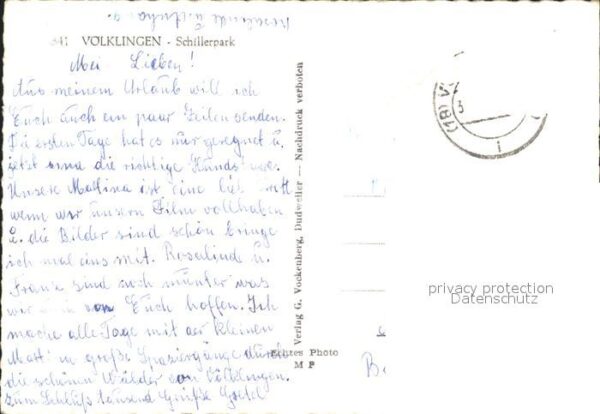 Rosalinde u.
641 VÖLKLINGEN - Schillerpark
Mei Lieben!
Aus meinem Urlaub will ich
Euch auch ein paar Zeilen senden.
Die ersten Tage hat es nur geregnet u.
jetzt sind die richtige
Unsere Martina ist eine
wenn wir unsern Film vollhaben
u. die Bilder sind schön bringe
ich mal eins mit. Rosalind u.
Frank sind noch munter was
wir von Euch hoffen. Ich
mache alle Tage mit der kleinen
große Spaziergänge durch
die schönen Wälder von Völklingen.
zum Schluß tausend Grüße
Verlag G. Vockenberg, Dudweiler — Nachdruck verboten
Echtes Photo
M P
(18)
privacy protection
Datenschutz